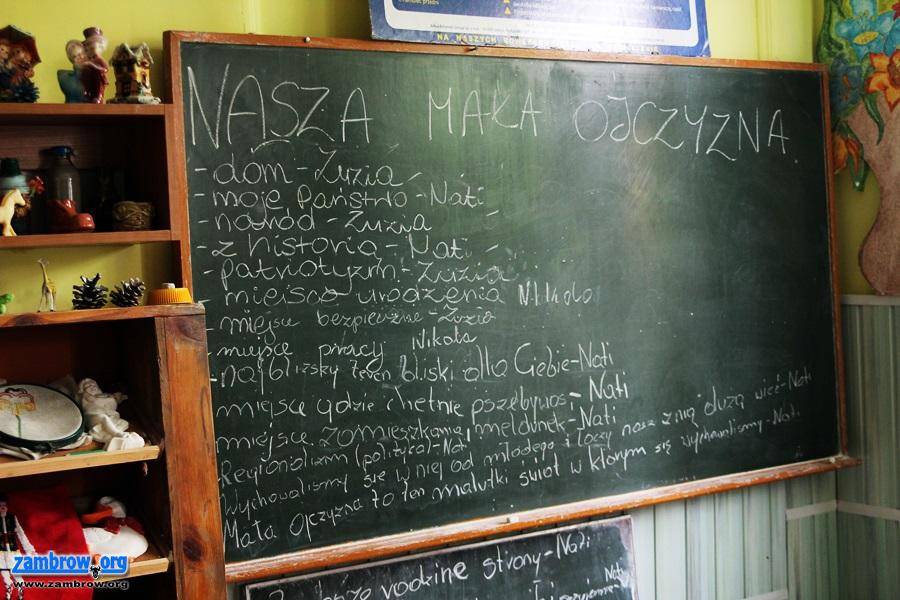 NA NASZYCH
NASZA MAŁA OJCZYZNA.
- dom - Zuzia
- moje Państwo - Nati
- naród - Zuzia
- z historią - Nati
- patriotyzm - Zuzia
miejsce urodzenia Nikola
- miejsce bezpieczne - Zuzia
- miejsce pracy Nikola
- najbliższy teren bliski dla Ciebie - Nati
miejsce gdzie chętnie przebywasz - Nati
miejsce zamieszkania, meldunek - Nati
- Regionalizm (polityka) - Nati
Wychowaliśmy się w niej od młodego i łączy nasz z nią dużą więź - Nati
Mała Ojczyzna to ten malutki świat w którym się wychowaliśmy - Nati
rodzinne strony - Nati
Nati
zambrow.org
www.zambrow.org